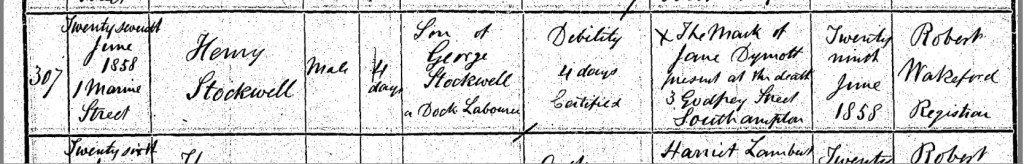 307
Twenty seventh
June
1858
1 Marine
Street
Henry
Stockwell
Male
4
days
Son of
George
Stockwell
a Dock Labourer
Debility
4 days
Certified
X The Mark of
Jane Dymott
present at the death
3 Godfrey Street
Southampton
Twenty
ninth
June
1858
Robert
Wakeford
Registrar
Twenty sixth
Harriet Lambert
Twenty
Robert